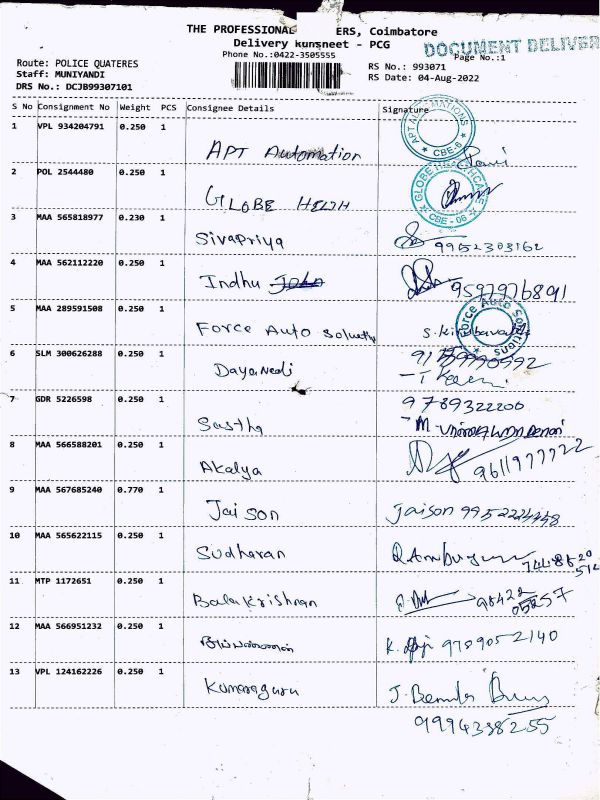 THE PROFESSIONAL ERS, Coimbatore
Delivery Runsheet - PCG
DOCUMENT DELIVER
Phone No.:0422-3505555
Page No.:1
Route: POLICE QUATERES
Staff: MUNIYANDI
DRS No.: DCJB99307101
RS No.: 993071
RS Date: 04-Aug-2022
S No Consignment No Weight PCS Consignee Details Signature
1 VPL 934204791 0.250 1 APT Automation
APT AUTOMATIONS
* CBE-6 *
2 POL 2544480 0.250 1 GLOBE HELTH
GLOBE HEALTHCARE
CBE - 06
3 MAA 565818977 0.230 1 Sivapriya 9952303162
4 MAA 562112220 0.250 1 Indhu 9597976891
5 MAA 289591508 0.250 1 Force Auto
Force Auto Solutions
6 SLM 300626288 0.250 1 Dayanedi
7 GDR 5226598 0.250 1 Sastha 9789322200
8 MAA 566588201 0.250 1 Akalya 9611977722
9 MAA 567685240 0.770 1 Jaison Jaison
10 MAA 565622115 0.250 1 Sudharan
11 MTP 1172651 0.250 1 Balakrishnan
12 MAA 566951232 0.250 1 K. 9789052140
13 VPL 124162226 0.250 1 Kumaraguru J.
9994338255